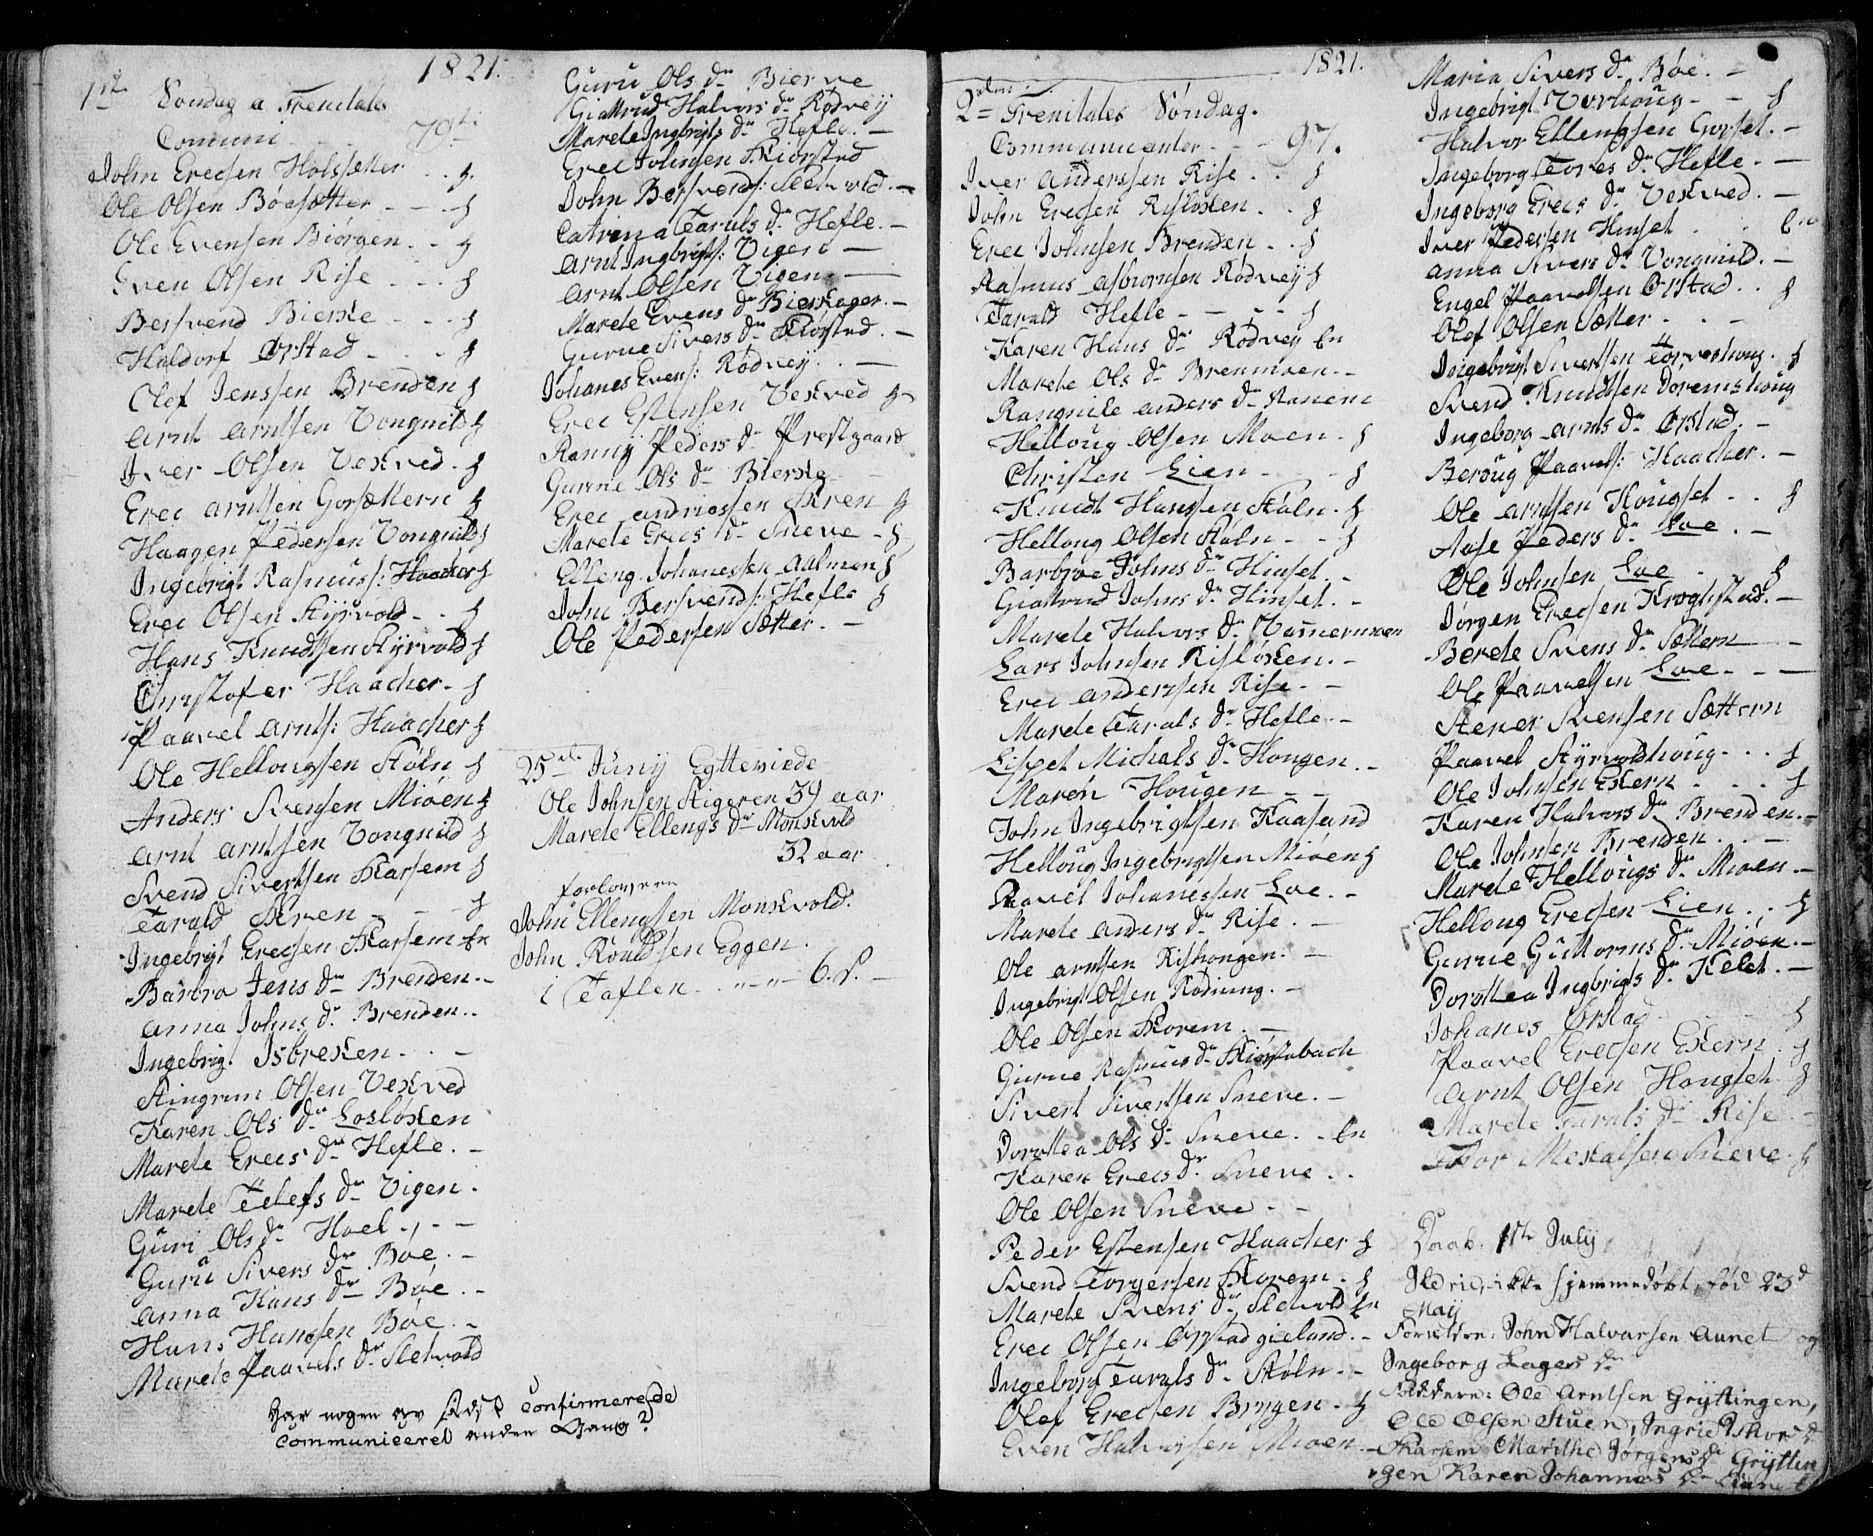 1821.
1ste Søndag a Trenitates
Comuni 79ti
John Erecsen Holssetter . . ꝝ
Ole Olsen Böesøtter - - . ꝝ
Ole Evensen Biørgen . - ꝝ
Even Olsen Rise . . . ꝝ
Bersvend Bierke - - - ꝝ
Haldorf Ørstad - . . ꝝ
Olef Jenssen Brenden ꝝ
Arnt Arntsen Vongnild ꝝ
Iver Olsen Vekved . ꝝ
Erec Arntsen Gorsættern ꝝ
Haagen Pedersen Vongnild ꝝ
Ingebrigt Rasmus: Haacker ꝝ
Erec Olsen Styrvold . . ꝝ
Hans Knudtsen Styrvold ꝝ
Christofer Haacker . ꝝ
Paavel Arnts: Haacker ꝝ
Ole Hellougsen Stöln ꝝ
Anders Svensen Mioen ꝝ
Arnt Arntsen Vongnild ꝝ
Svend Sivertsen Skarsem ꝝ
Tarald Skren - - - ꝝ
Ingebrigt Erecsen Skarsem
Barbra Jens Dr Brenden . -
Anna Johns Dr Brenden . .
Ingebrigt Isbreken . . -
Stingrim Olsen Vekved
Karen Ols Dr Losløken
Marete Erecs Dr Hefle . -
Marete Telefs Dr Vigen .
Guri Ols Dr Hoel . , - -
Guru Sivers Dr Böe . -
Anna Hans Dr Böe . -
Hans Hansen Böe . -
Marete Paavels Dr Sletvold
har nogen av sidst Confirmerede
Communiceret anden Gang?
Guru Ols Dr Bierke
Giertrud Halvors Dr Rødvey
Marete Ingbrigts Dr Hefle . -
Erec Johnsen Skiørstad
John Bersvends: Sletvold . -
Catrina Taruls Dr Hefle . -
Arnt Ingbrigts: Vigen -
Arnt Olsen Vigen -
Marete Evens Dr Bierkager . -
Gurue Sivers Dr Skiørstad . -
Johanes Evens: Rødvey . . -
Erec Estensen Vekved ꝝ
Ranny Peders Dr Prestgaard
Gurue Ols Dr Bierke -
Erec Andriassen Skren ꝝ
Marete Erecs Dr Sneve - ꝝ
Elleng Johanessen Aalmen ꝝ
John Bersvends: Hefle ꝝ
Ole Pedersen Sætter . -
25de Juny Egteviede
Ole Johnsen Stigeren 39 aar
Marete Ellengs Dr Monskvold
32 aar
forlovere
John Ellengsen Monskvold.
John Rouldsen Eggen .
i Taflen . . . - 6. s. -
1821.
2den Trenitates Söndag.
Communicanter - - - 97.
Iver Anderssen Rise . . ꝝ
John Erecsen Risløken . . ꝝ
Erec Johnsen Brenden . . ꝝ
Rasmus Asbiornsen Rødvey ꝝ
Tarald Hefle - - - - ꝝ
Karen Hans Dr Rødvey
Marete Ols Dr Brenmoen . -
Rangnile Anders Dr
Helloug Olsen Moen . ꝝ
Christen Lien - - - ꝝ
Knudt Hanssen Stöln . ꝝ
Helloug Olsen Stöln - - ꝝ
Barbroe Johns Dr Hinset . -
Giertrud Johns Dr Hinset . -
Marete Halvors Dr
Lars Johnsen Risløken . -
Erec Anderssen Rise - -
Marete Taruls Dr Hefle . -
Lisbet Michals Dr Hougen . -
Maren Hougen - -
John Ingebrigtsen Kaasand
Helloug Ingebrigtsen Mioen ꝝ
Paavel Johanessen Loe . -
Marete Anders Dr Rise . -
Ole Arntsen Rishougen . -
Ingebrigt Olsen Rödning . -
Ole Olsen Skorem . -
Gurue Rasmus Dr Skiørsbach
Sivert Sivertsen Sneve . -
Dorottea Ols Dr Sneve . -
Karen Erecs Dr Sneve . .
Ole Olsen Sneve . -
Peder Estensen Haacker ꝝ
Svend Torgersen Skorem . ꝝ
Marete Svens Dr Sletvold
Erec Olsen Ørstadgieland . -
Ingeborg Taruls Dr Stöln . -
Olef Erecsen Bryggen . ꝝ
Even Halvorsen Mioen . -
Maria Sivers Dr Böe . -
Ingebrigt Vorhoug - - ꝝ
Halvor Ellengsen Gorset . -
Ingeborg Tores Dr Hefle . -
Ingeborg Erecs Dr Vekved . -
Iver Pedersen Hinset
Anna Sivers Dr Vongnild . -
Engel Paavelsen Ørstad . . ꝝ
Olef Olsen Sætter . . -
Ingebrigt Sivertsen Torveshoug . ꝝ
Svend Knudtsen Doremshoug
Ingeborg Arnts Dr Ørstad . -
Beroug Paavels: Haacker . -
Ole Arntsen Hougset . . ꝝ
Aase Peders Dr Loe . -
Ole Johnsen Loe . . ꝝ
Jørgen Erecsen Krogstad . -
Berete Svens Dr Sættern -
Ole Paavelsen Loe - - -
Stener Svensen Sættern
Paavel Styrvoldshoug . . . ꝝ
Ole Johnsen Ekern . . . ꝝ
Karen Halvors Dr Brenden . -
Ole Johnsen Brenden . . -
Marete Hellougs Dr Mioen . -
Helloug Erecsen Lien . . ꝝ
Gurue Guttorms Dr Mioen . -
Dorottea Ingbrigts Dr Kelet . -
Johanes Ørstad . . - ꝝ
Paavel Erecsen Ekern . ꝝ
Arnt Olsen Hougset . ꝝ
Marete Taruls Dr Rise . -
Tor Mekalsen Sneve . ꝝ
Daab. 1ste July
Ildrid, ikke hjemmedöbt, föd 23d
May
Forældre: John Halvorsen Aunet og
Ingeborg Lagers Dr
Faddere: Ole Arntsen Gryttingen,
Ole Olsen Stuen, Ingrid Thors D
Skarsem Marithe Jörgens Dr Grytten
gen Karen Johannes Dr Aunet